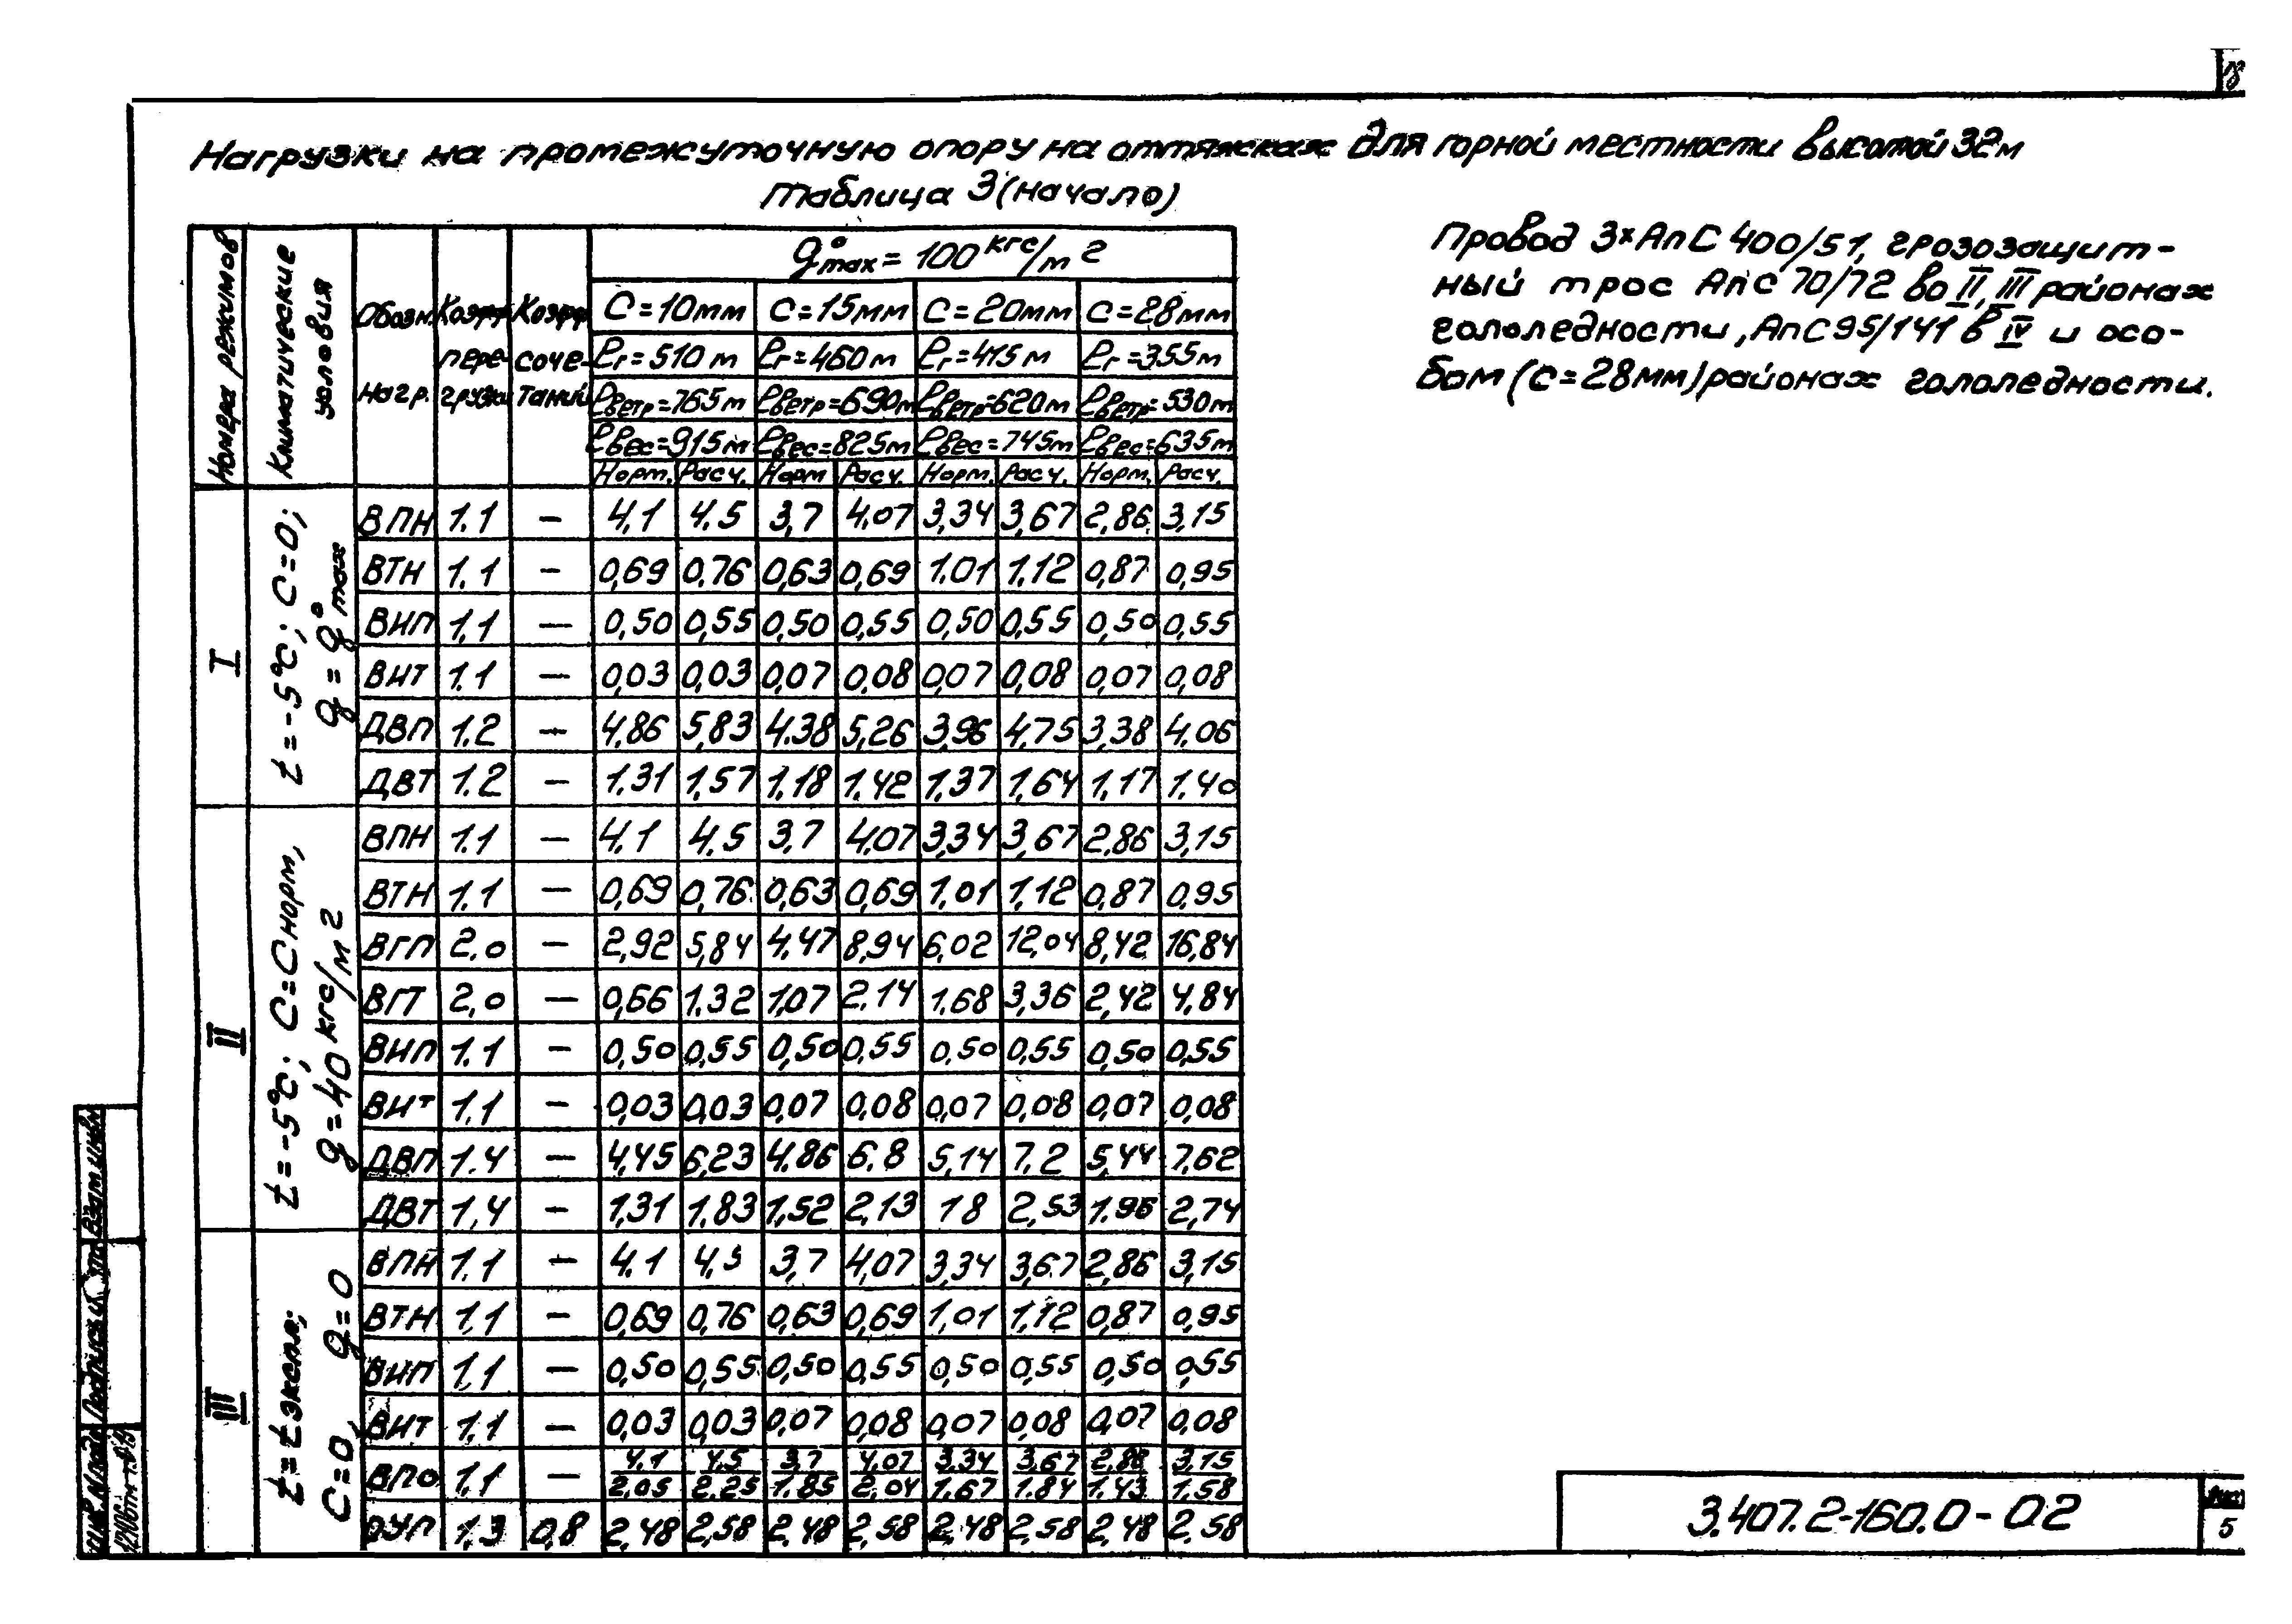 18
Нагрузки на промежуточную опору на оттяжках для горной местности высотой 32м
Таблица 3 (начало)
Провод 3×АпС 400/51, грозозащит-
ный трос АпС 70/72 во II, III районах
гололедности, АпС 95/141 в IV и осо-
бом (С=28мм) районах гололедности.
Номера режимов | Климатические условия | Обозн. нагр. | Коэфф. пере- грузки | Коэфф. соче- таний | q°max = 100 кгс/м²
С=10мм | С=15мм | С=20мм | С=28мм
ℓг=510м | ℓг=460м | ℓг=415м | ℓг=355м
ℓветр=765м | ℓветр=690м | ℓветр=620м | ℓветр=530м
ℓвес=915м | ℓвес=825м | ℓвес=745м | ℓвес=635м
Норм. | Расч. | Норм | Расч. | Норм. | Расч. | Норм. | Расч.
I | t=-5°С; С=0; q=q°max
ВПН | 1.1 | — | 4,1 | 4,5 | 3,7 | 4,07 | 3,34 | 3,67 | 2,86 | 3,15
ВТН | 1.1 | — | 0,69 | 0,76 | 0,63 | 0,69 | 1.01 | 1,12 | 0,87 | 0,95
ВИП | 1.1 | — | 0,50 | 0,55 | 0,50 | 0,55 | 0,50 | 0,55 | 0,50 | 0,55
ВИТ | 1.1 | — | 0,03 | 0,03 | 0,07 | 0,08 | 0,07 | 0,08 | 0,07 | 0,08
ДВП | 1.2 | — | 4,86 | 5,83 | 4.38 | 5,26 | 3,96 | 4,75 | 3,38 | 4,06
ДВТ | 1.2 | — | 1,31 | 1,57 | 1,18 | 1,42 | 1,37 | 1,64 | 1,17 | 1,40
II | t=-5°С; С=Снорм, q=40 кгс/м²
ВПН | 1.1 | — | 4,1 | 4,5 | 3,7 | 4,07 | 3,34 | 3,67 | 2,86 | 3,15
ВТН | 1.1 | — | 0,69 | 0,76 | 0,63 | 0,69 | 1,01 | 1,12 | 0,87 | 0,95
ВГП | 2,0 | — | 2,92 | 5,84 | 4,47 | 8,94 | 6,02 | 12,04 | 8,42 | 16,84
ВГТ | 2,0 | — | 0,66 | 1,32 | 1,07 | 2,14 | 1,68 | 3,36 | 2,42 | 4,84
ВИП | 1.1 | — | 0,50 | 0,55 | 0,50 | 0,55 | 0,50 | 0,55 | 0,50 | 0,55
ВИТ | 1.1 | — | 0,03 | 0,03 | 0,07 | 0,08 | 0,07 | 0,08 | 0,07 | 0,08
ДВП | 1.4 | — | 4,45 | 6,23 | 4,86 | 6,8 | 5,14 | 7,2 | 5,44 | 7,62
ДВТ | 1,4 | — | 1,31 | 1,83 | 1,52 | 2,13 | 1 8 | 2,53 | 1.96 | 2,74
III | t=tэкспл; С=0, q=0
ВПН | 1.1 | — | 4,1 | 4,5 | 3,7 | 4,07 | 3,34 | 3,67 | 2,86 | 3,15
ВТН | 1.1 | — | 0,69 | 0,76 | 0,63 | 0,69 | 1,01 | 1,12 | 0,87 | 0,95
ВИП | 1.1 | — | 0,50 | 0,55 | 0,50 | 0,55 | 0,50 | 0,55 | 0,50 | 0,55
ВИТ | 1.1 | — | 0,03 | 0,03 | 0,07 | 0,08 | 0,07 | 0,08 | 0,07 | 0,08
ВПО | 1.1 | — | 4,1/2,05 | 4,5/2,25 | 3,7/1,85 | 4,07/2,04 | 3,34/1,67 | 3,67/1,84 | 2,86/1,43 | 3,15/1,58
РУП | 1.3 | 0,8 | 2,48 | 2,58 | 2,48 | 2,58 | 2,48 | 2,58 | 2,48 | 2,58
3.407.2-160.0-02
Лист
5